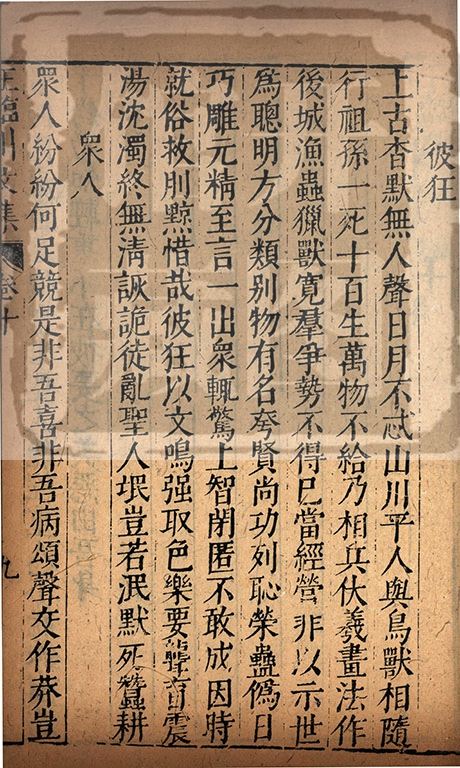 彼狂
上古杳默無人聲日月不忒山川平人與鳥獸相隨
行祖孫一死十百生萬物不給乃相兵伏羲畫法作
後城漁蟲獵獸寛羣爭勢不得已當經營非以示世
為聰明方分類别物有名夸賢尚功列恥榮蠱僞日
巧雕元精至言一出衆輒驚上智閉匿不敢成因時
就俗救刖黥惜哉彼狂以文鳴强取色樂要聾盲震
蕩沈濁終無清詼詭徒亂聖人氓豈若泯默死蠶耕
衆人
衆人紛紛何足競是非吾喜非吾病頌聲交作莽豈
王臨川文集 卷十 九